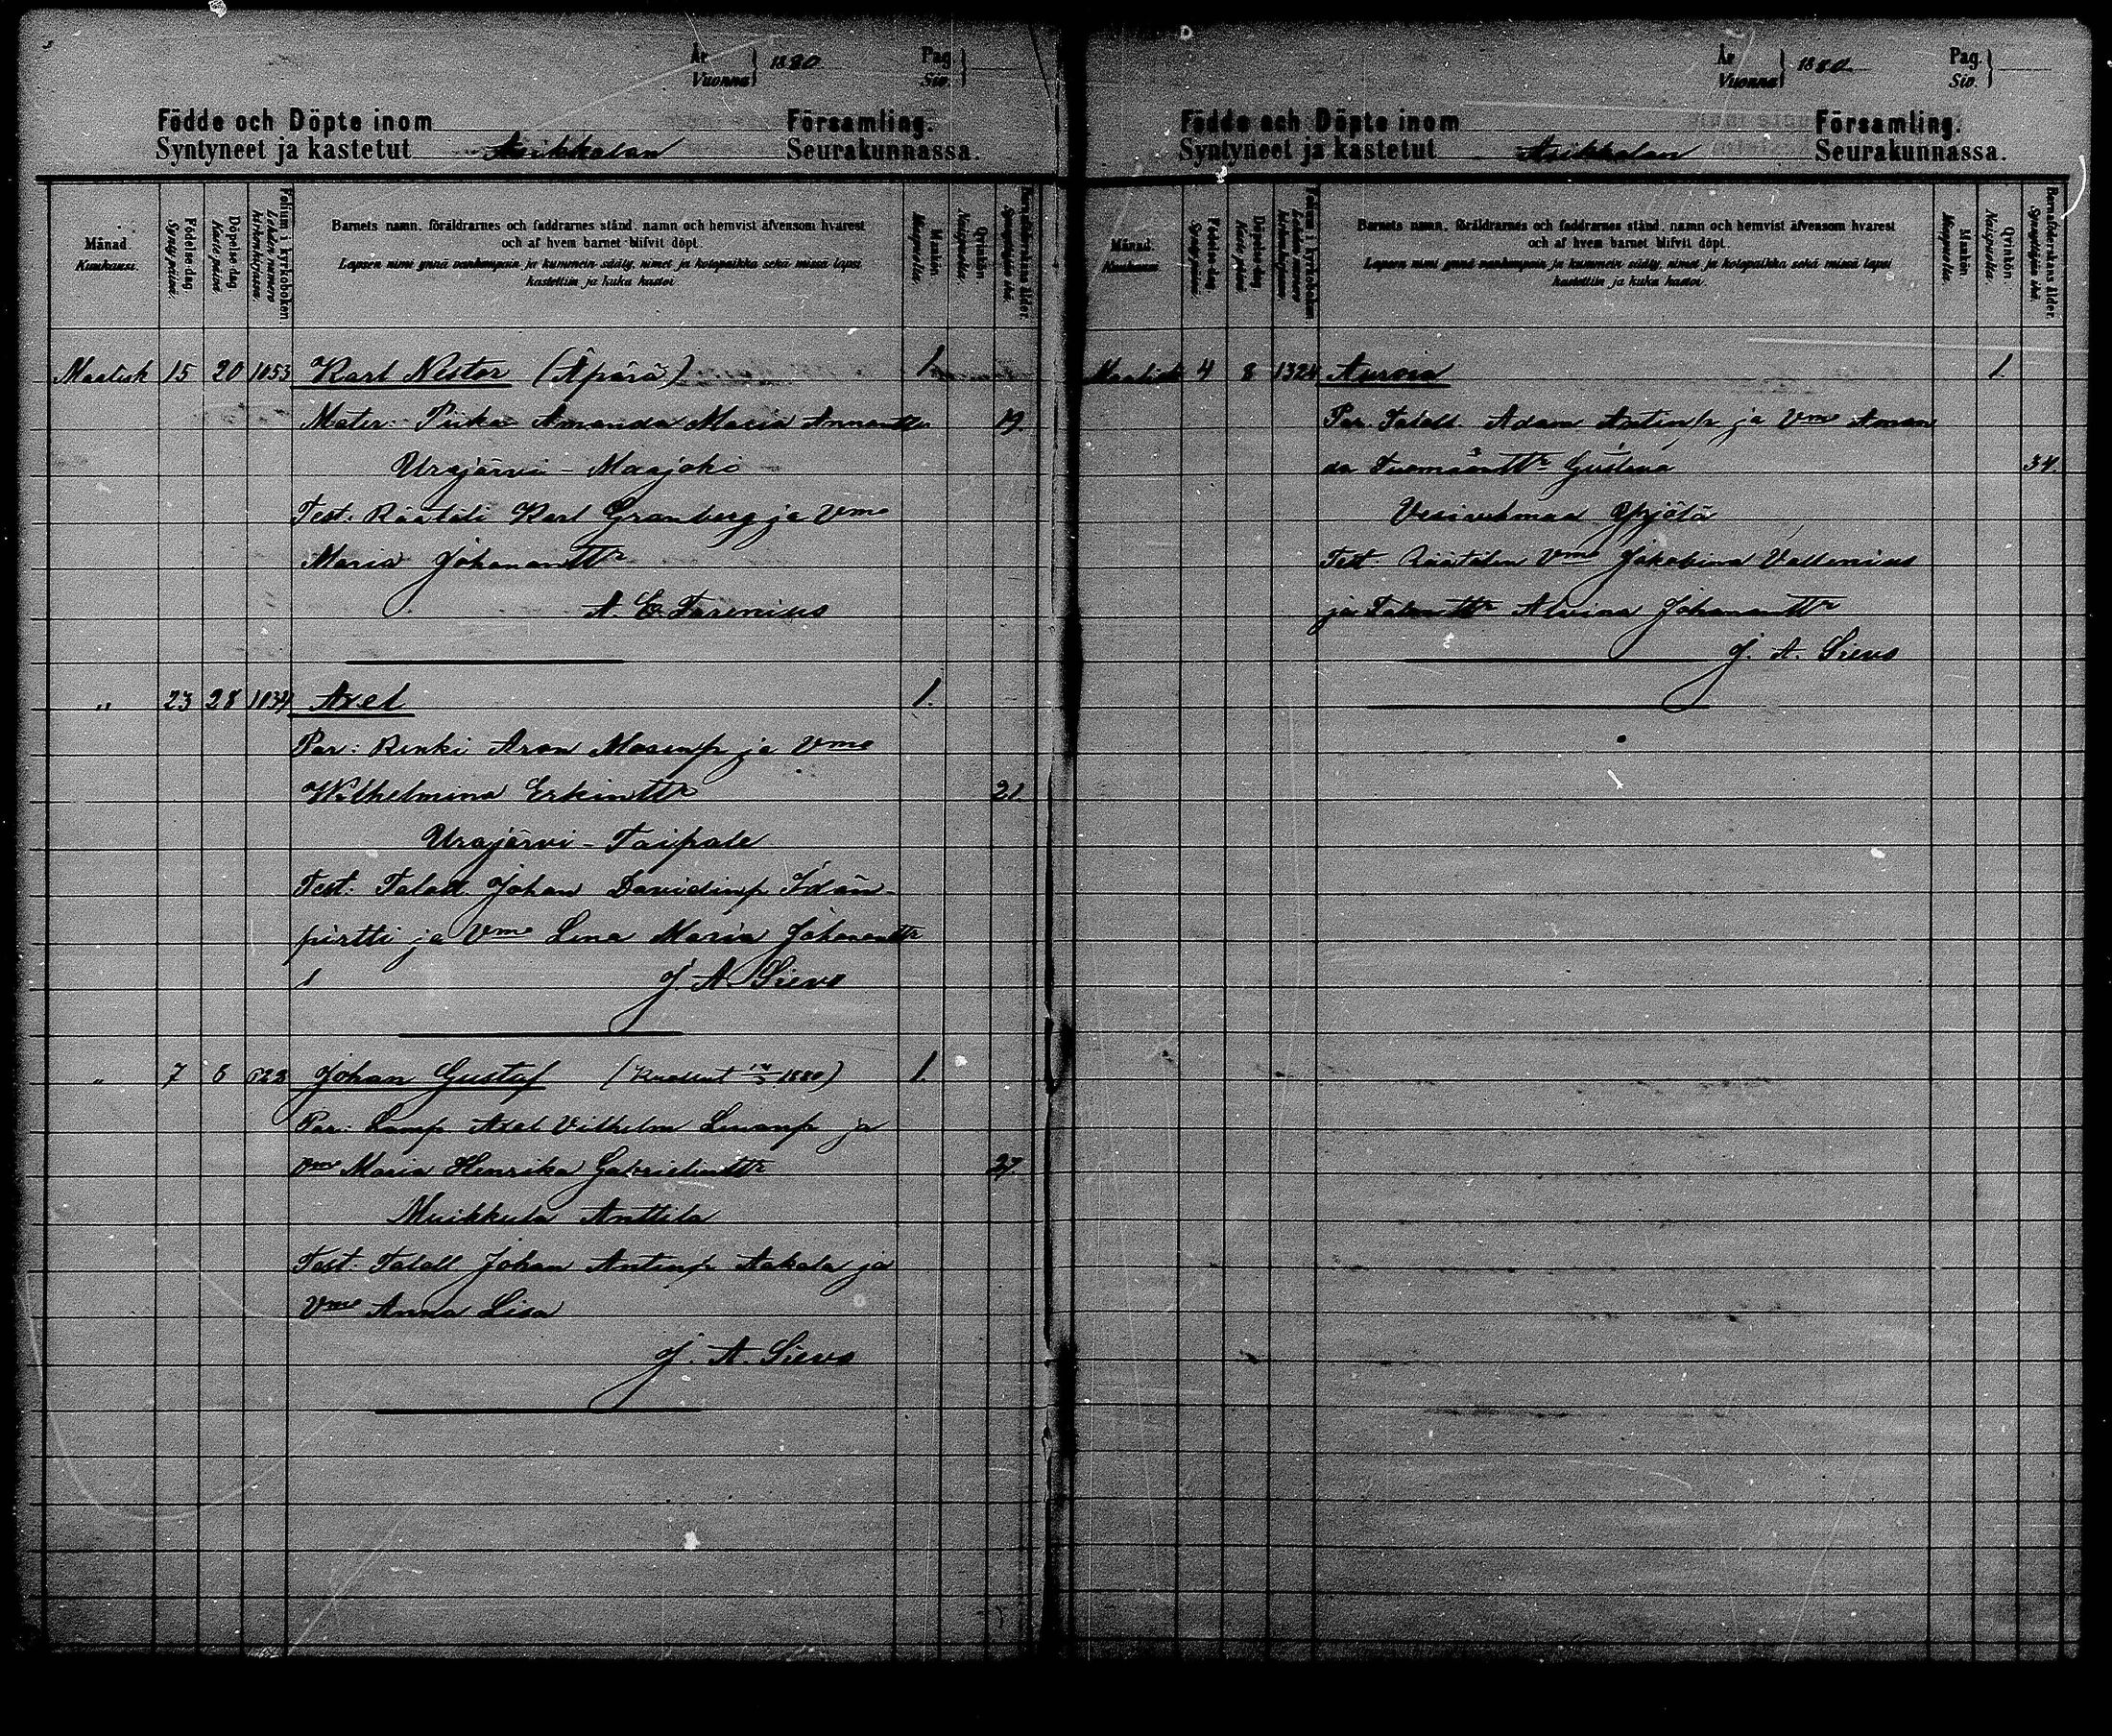 År
Vuonna } 1880
Pag.
Siv. }
Födde och Döpte inom Församling.
Syntyneet ja kastetut Asikkalan Seurakunnassa.
Månad.
Kuukausi.
Födelse-dag.
Synty-päivä.
Döpelse-dag.
Kaste-päivä.
Folium i kyrkoboken.
Lehden numero kirkonkirjassa.
Barnets namn, föräldrarnes och faddrarnes stånd, namn och hemvist äfvensom hvarest
och af hvem barnet blifvit döpt.
Lapsen nimi ynnä vanhempain ja kummein sääty, nimet ja kotopaikka sekä missä lapsi
kastettiin ja kuka kastoi.
Mankön.
Miespuolia.
Qvinkön.
Naispuolia.
Barnaföderskans ålder.
Synnyttäjän ikä.
Maalisk 15 20 1053 Karl Nestor (Äpärä) 1.
Mater: Piika Amanda Maria Annantr 19.
Urajärvi - Maajoki
Test: Räätäli Karl Granberg ja Vmo
Maria Johanantr
A. E. Farenius
" 23 28 1034 Axel 1.
Par: Renki Aron Mosesp ja Vmo
Wilhelmina Erkintr 21.
Urajärvi - Taipale
Test: Talall Johan Davidinp Idän-
pirtti ja Vmo Lena Maria Johanantr
J. A. Sievo
" 7 8 623 Johan Gustaf (Kuollut 1880) 1.
Par: Lamp Axel Vilhelm ja
Vmo Maria Henrika Gabrielintr 27.
Muikkula Anttila
Test: Talall Johan Antinp Aakala ja
Vmo Anna Lisa
J. A. Sievo
År
Vuonna } 1880
Pag.
Siv. }
Födde och Döpte inom Församling.
Syntyneet ja kastetut Asikkalan Seurakunnassa.
Månad.
Kuukausi.
Födelse-dag.
Synty-päivä.
Döpelse-dag.
Kaste-päivä.
Folium i kyrkoboken.
Lehden numero kirkonkirjassa.
Barnets namn, föräldrarnes och faddrarnes stånd, namn och hemvist äfvensom hvarest
och af hvem barnet blifvit döpt.
Lapsen nimi ynnä vanhempain ja kummein sääty, nimet ja kotopaikka sekä missä lapsi
kastettiin ja kuka kastoi.
Mankön.
Miespuolia.
Qvinkön.
Naispuolia.
Barnaföderskans ålder.
Synnyttäjän ikä.
Maalisk 4 8 1324 Aurora 1.
Par. Talall. Adam Antinp ja Vmo Aman
da Tuomaantr Gustava 34.
Vesivehmaa Yrjölä
Test. Räätälin Vmo Jakobina Vallenius
ja Talontr Alvina Johanantr
J. A. Sievo